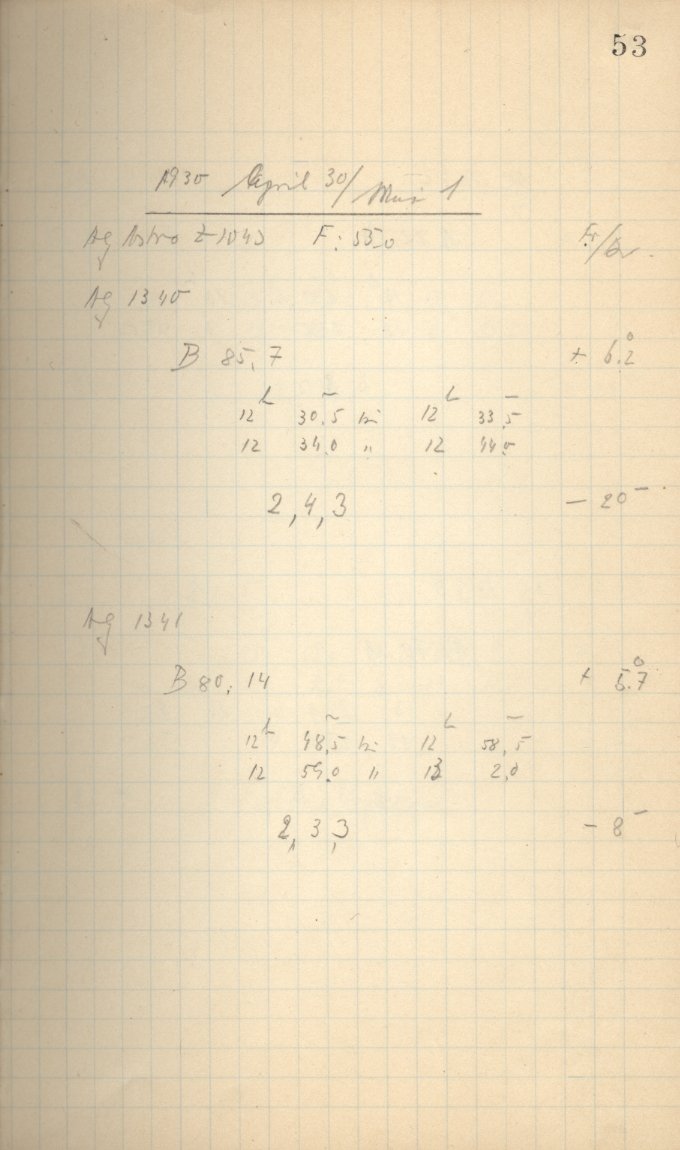 53
1930 April 30/Mai 1
Ag Astro Z 1043 F: 55,0 Fr/
Ag 1340
B 85,7 + 6.2°
12h 30,5m bis 12h 33,5m
12 34,0 " 12 44,0
2,4,3 - 20m
Ag 1341
B 80,14 + 5.7°
12h 48,5m bis 12h 58,5m
12 59,0 " 13 2,0
2,3,3 - 8m